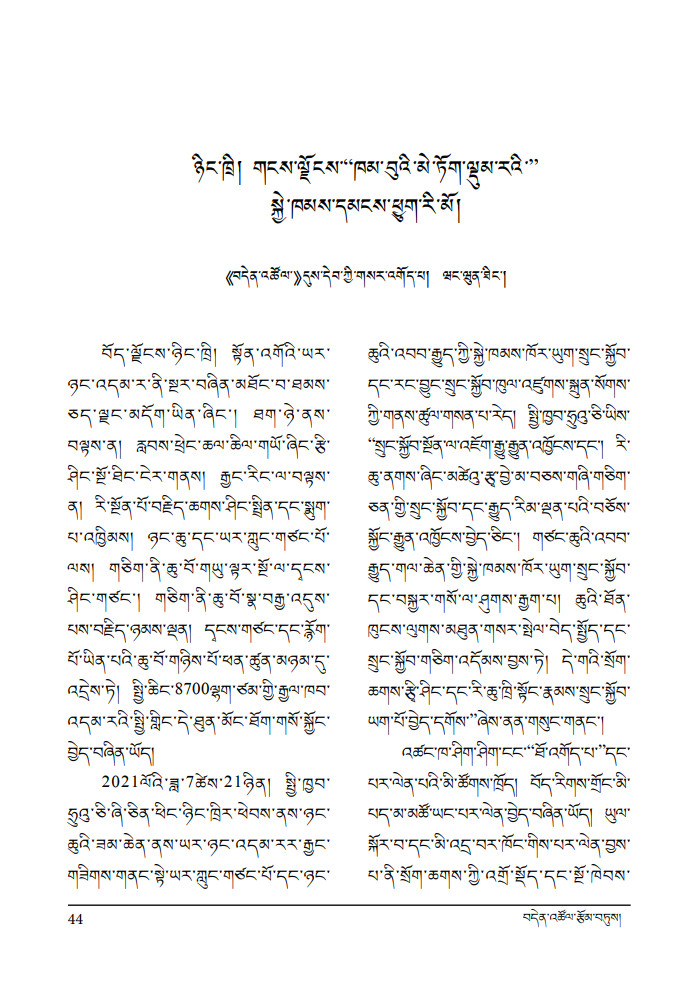 ཉིང་ཁྲི། གངས་ལྗོངས་“ཁམ་བུའི་མེ་ཏོག་ལྡུམ་རའི་”
སྐྱེ་ཁམས་དམངས་ཕྱུག་རི་མོ།
《བདེན་འཚོལ་》དུས་དེབ་ཀྱི་གསར་འགོད་པ། ཝང་ཝུན་ཐིང་།
བོད་ལྗོངས་ཉིང་ཁྲི། སྟོན་འགོའི་ཡར་
ཉང་འདམ་ར་ནི་སྔར་བཞིན་མཐོང་བ་ཐམས་
ཅད་ལྗང་མདོག་ཡིན་ཞིང་། ཐག་ཉེ་ནས་
བལྟས་ན། རླབས་ཕྲེང་ཆལ་ཆིལ་གཡོ་ཞིང་རྩི་
ཤིང་སྔོ་ཐིང་ངེར་གནས། རྒྱང་རིང་ལ་བལྟས་
ན། རི་སྔོན་པོ་བརྗིད་ཆགས་ཤིང་སྤྲིན་དང་སྨུག་
པ་འཁྱིམས། ཉང་ཆུ་དང་ཡར་ཀླུང་གཙང་པོ་
ལས། གཅིག་ནི་ཆུ་བོ་གཡུ་ལྟར་སྔོ་ལ་དྭངས་
ཤིང་གཙང་། གཅིག་ནི་ཆུ་བོ་སྣ་བརྒྱ་འདུས་
པས་བརྗིད་ཉམས་ལྡན། དྭངས་གཙང་དང་རྙོག་
པོ་ཡིན་པའི་ཆུ་བོ་གཉིས་པོ་ཕན་ཚུན་མཉམ་དུ་
འདྲེས་ཏེ། སྤྱི་ཆིང་8700ལྷག་ཙམ་གྱི་རྒྱལ་ཁབ་
འདམ་རའི་སྤྱི་གླིང་དེ་ཐུན་མོང་ཐོག་གསོ་སྐྱོང་
བྱེད་བཞིན་ཡོད།
2021ལོའི་ཟླ་7ཚེས་21ཉིན། སྤྱི་ཁྱབ་
ཧྲུའུ་ཅི་ཞི་ཅིན་ཕིང་ཉིང་ཁྲིར་ཕེབས་ནས་ཉང་
ཆུའི་ཟམ་ཆེན་ནས་ཡར་ཉང་འདམ་རར་རྒྱང་
གཟིགས་གནང་སྟེ་ཡར་ཀླུང་གཙང་པོ་དང་ཉང་
ཆུའི་འབབ་རྒྱུད་ཀྱི་སྐྱེ་ཁམས་ཁོར་ཡུག་སྲུང་སྐྱོབ་
དང་རང་བྱུང་སྲུང་སྐྱོབ་ཁུལ་འཛུགས་སྐྲུན་སོགས་
ཀྱི་གནས་ཚུལ་གསན་པ་རེད། སྤྱི་ཁྱབ་ཧྲུའུ་ཅི་ཡིས་
“སྲུང་སྐྱོབ་སྔོན་ལ་འཇོག་རྒྱུ་རྒྱུན་འཁྱོངས་དང་། རི་
ཆུ་ནགས་ཞིང་མཚེའུ་རྩྭ་བྱེ་མ་བཅས་གཞི་གཅིག་
ཅན་གྱི་སྲུང་སྐྱོབ་དང་རྒྱུད་རིམ་ལྡན་པའི་བཅོས་
སྐྱོང་རྒྱུན་འཁྱོངས་བྱེད་ཅིང་། གཙང་ཆུའི་འབབ་
རྒྱུད་གལ་ཆེན་གྱི་སྐྱེ་ཁམས་ཁོར་ཡུག་སྲུང་སྐྱོབ་
དང་བསྐྱར་གསོ་ལ་ཤུགས་རྒྱག་པ། ཆུའི་ཐོན་
ཁུངས་ལུགས་མཐུན་གསར་སྤེལ་བེད་སྤྱོད་དང་
སྲུང་སྐྱོབ་གཅིག་འདོམས་བྱས་ཏེ། དེ་གའི་སྲོག་
ཆགས་རྩི་ཤིང་དང་རི་ཆུ་ཁྲི་སྟོང་རྣམས་སྲུང་སྐྱོབ་
ཡག་པོ་བྱེད་དགོས་”ཞེས་ནན་གསུང་གནང་།
འཚང་ཁ་ཤིག་ཤིག་ངང་“ཐོ་འགོད་པ་”དང་
པར་ལེན་པའི་མི་ཚོགས་ཁྲོད། བོད་རིགས་གྲོང་མི་
པད་མ་མཚོ་ཡང་པར་ལེན་བྱེད་བཞིན་ཡོད། ཡུལ་
སྐོར་བ་དང་མི་འདྲ་བར་ཁོང་གིས་པར་ལེན་བྱས་
པ་ནི་སྲོག་ཆགས་ཀྱི་འགྲོ་སྡོད་དང་སྔོ་ཁེབས་
44
བདེན་འཚོལ་རྩོམ་བཏུས།